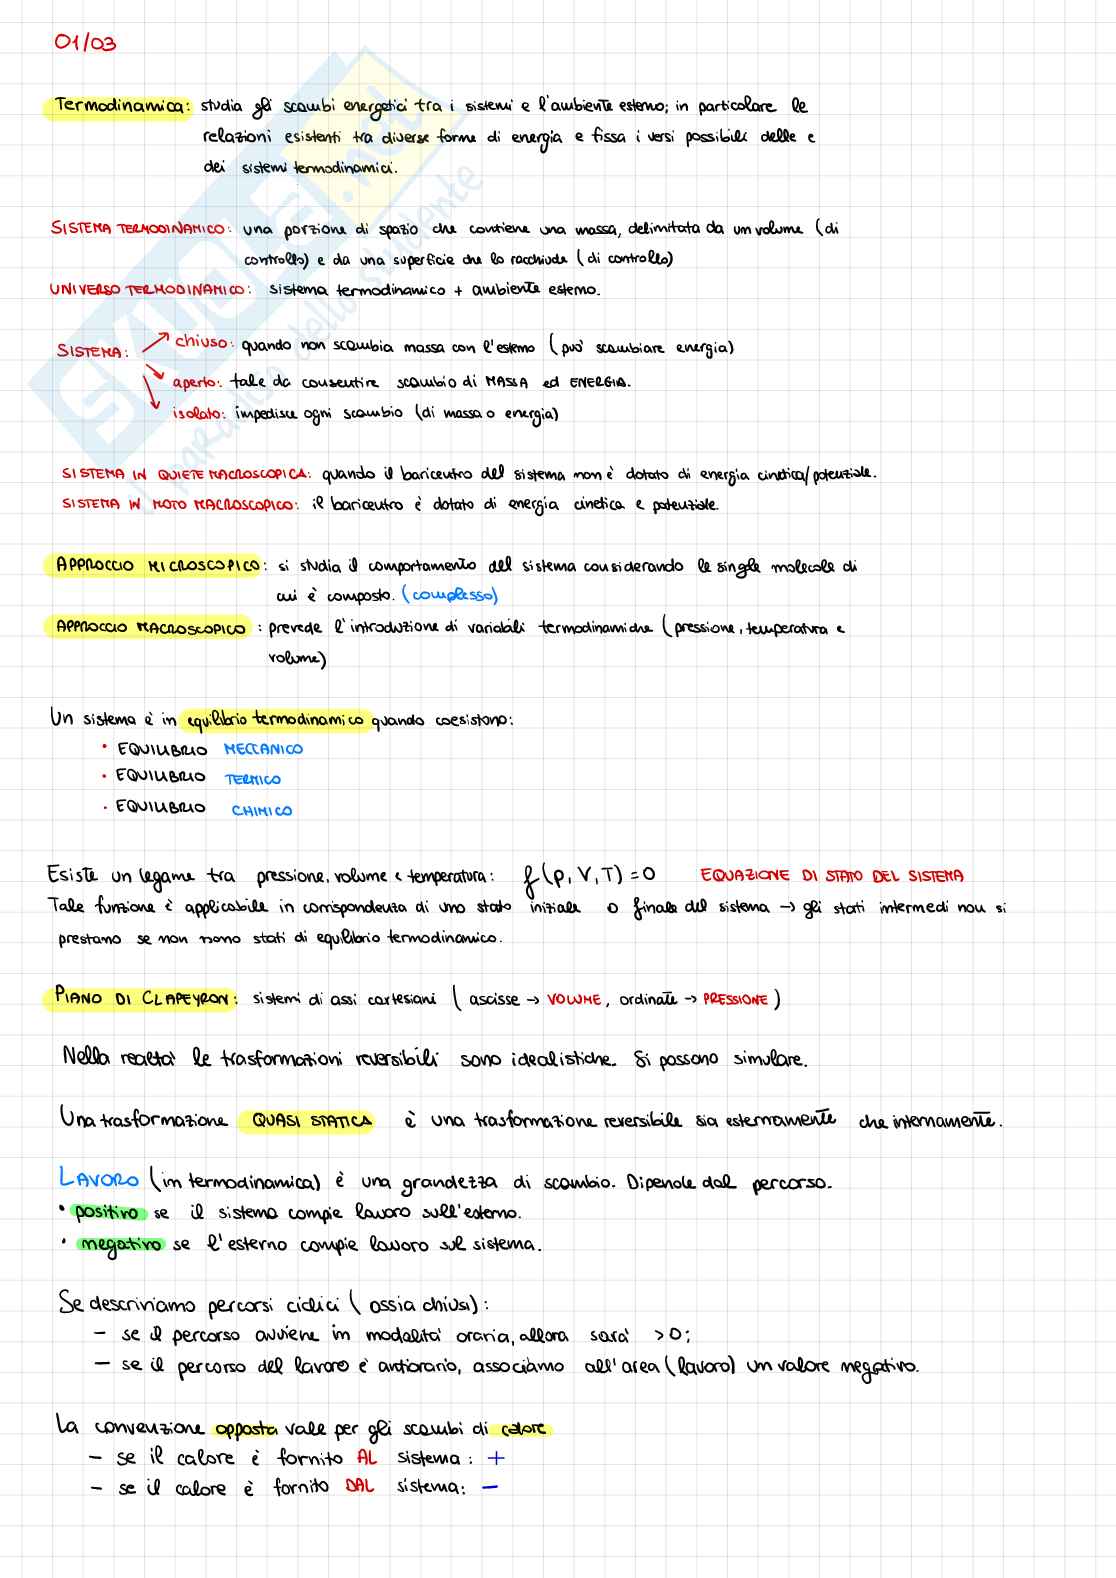 01/03
Termodinamica: studia gli scambi energetici tra i sistemi e l'ambiente esterno; in particolare le
relazioni esistenti tra diverse forme di energia e fissa i versi possibili delle e
dei sistemi termodinamici.
SISTEMA TERMODINAMICO: una porzione di spazio che contiene una massa, delimitata da un volume (di
controllo) e da una superficie che lo racchiude (di controllo)
UNIVERSO TERMODINAMICO: sistema termodinamico + ambiente esterno.
SISTEMA: chiuso: quando non scambia massa con l'esterno (può scambiare energia)
aperto: tale da consentire scambio di MASSA ed ENERGIA.
isolato: impedisce ogni scambio (di massa o energia)
SISTEMA IN QUIETE MACROSCOPICA: quando il baricentro del sistema non è dotato di energia cinetica/potenziale.
SISTEMA IN MOTO MACROSCOPICO: il baricentro è dotato di energia cinetica e potenziale.
APPROCCIO MICROSCOPICO: si studia il comportamento del sistema considerando le single molecole di
cui è composto. (complesso)
APPROCCIO MACROSCOPICO: prevede l'introduzione di variabili termodinamiche (pressione, temperatura e
volume)
Un sistema è in equilibrio termodinamico quando coesistono:
• EQUILIBRIO MECCANICO
• EQUILIBRIO TERMICO
• EQUILIBRIO CHIMICO
Esiste un legame tra pressione, volume e temperatura: f(p,V,T)=0 EQUAZIONE DI STATO DEL SISTEMA
Tale funzione è applicabile in corrispondenza di uno stato iniziale o finale del sistema → gli stati intermedi non si
prestano se non sono stati di equilibrio termodinamico.
PIANO DI CLAPEYRON: sistemi di assi cartesiani (ascisse → VOLUME, ordinate → PRESSIONE)
Nella realtà le trasformazioni reversibili sono idealistiche. Si possono simulare.
Una trasformazione QUASI STATICA è una trasformazione reversibile sia esternamente che internamente.
LAVORO (in termodinamica) è una grandezza di scambio. Dipende dal percorso.
• positivo se il sistema compie lavoro sull'esterno.
• negativo se l'esterno compie lavoro sul sistema.
Se descriviamo percorsi ciclici (ossia chiusi):
- se il percorso avviene in modalità oraria, allora sarà >0;
- se il percorso del lavoro è antiorario, associamo all'area (lavoro) un valore negativo.
La convenzione opposta vale per gli scambi di calore
- se il calore è fornito AL sistema: +
- se il calore è fornito DAL sistema: -